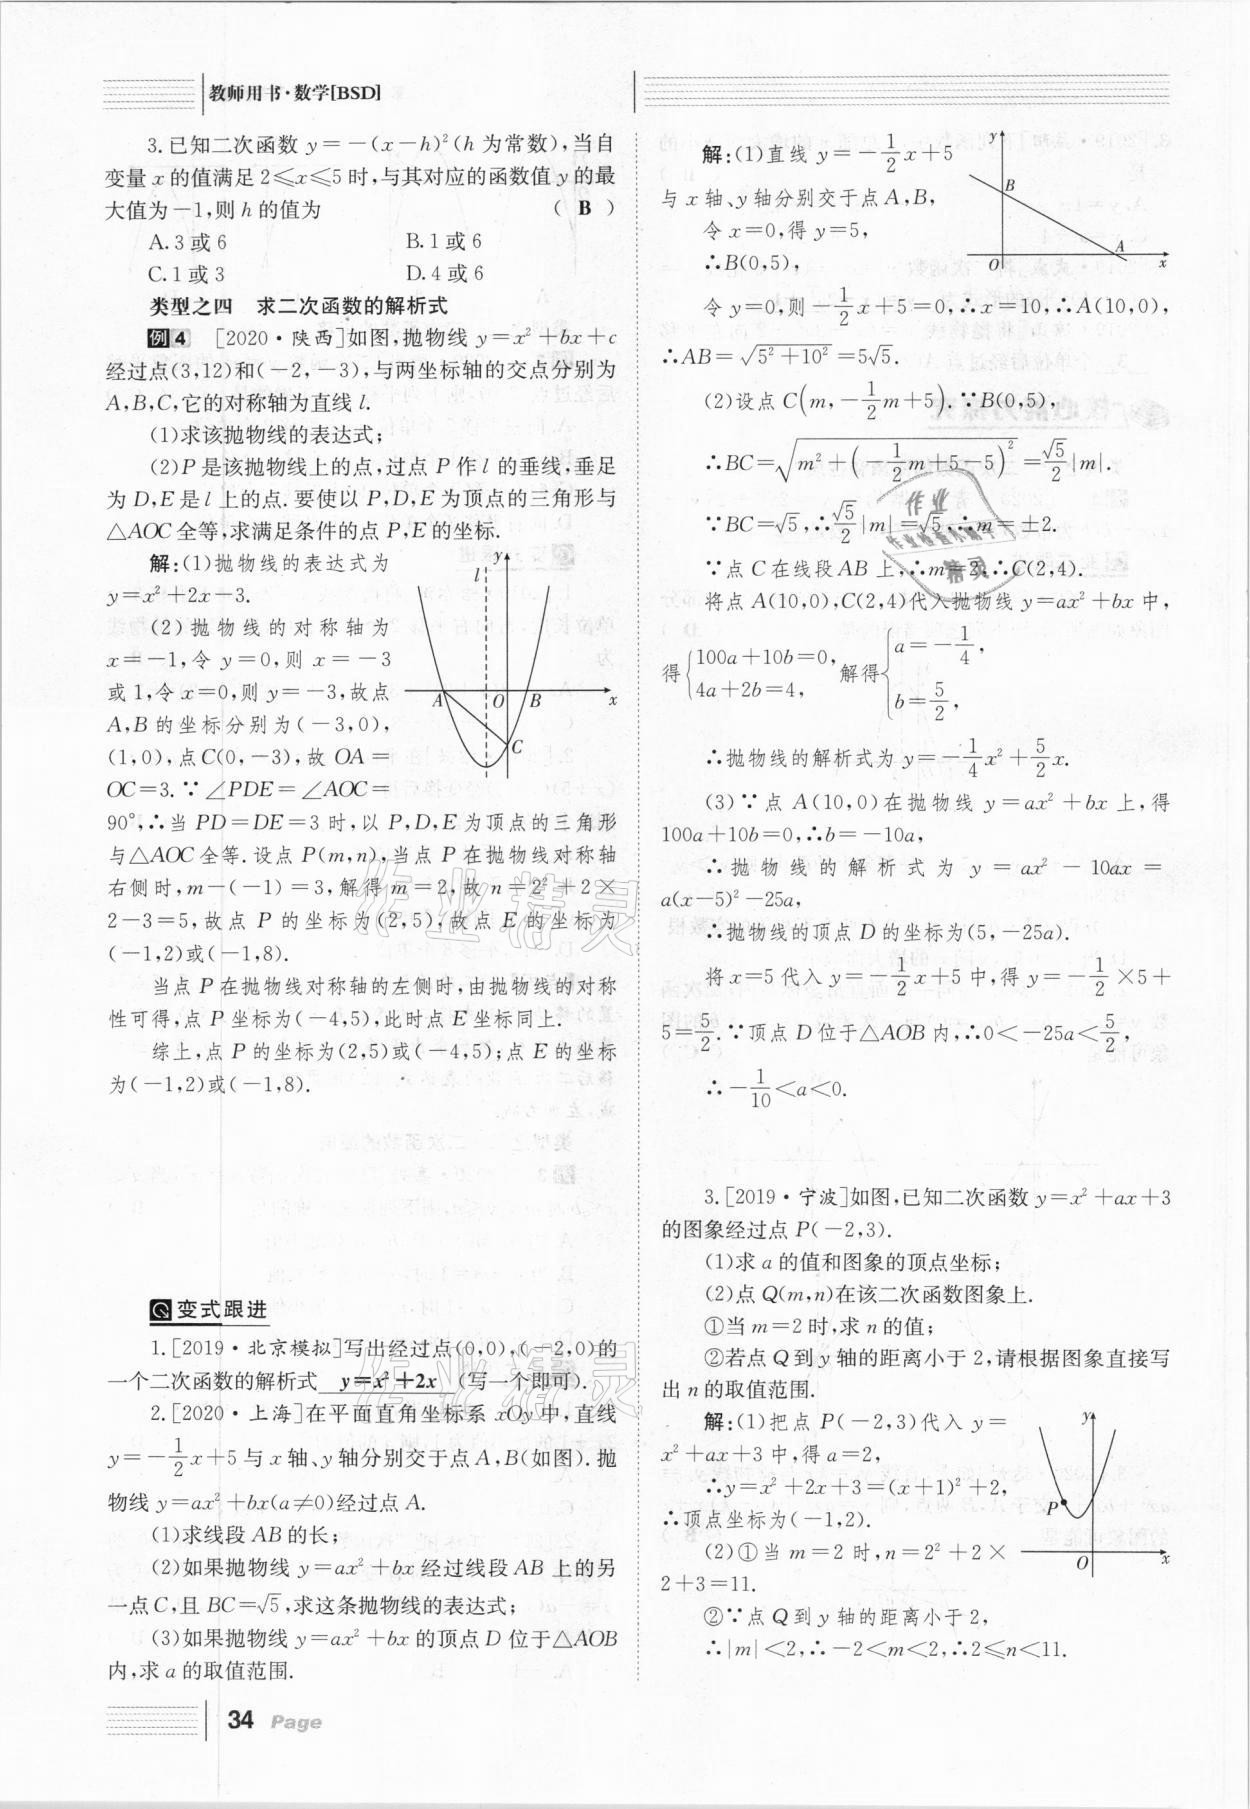 教师用书·数学[BSD]
3.已知二次函数 y=-(x-h)²(h 为常数),当自
变量 x 的值满足 2≤x≤5 时,与其对应的函数值 y 的最
大值为-1,则 h 的值为 ( B )
A.3 或 6 B.1 或 6
C.1 或 3 D.4 或 6
类型之四 求二次函数的解析式
例4 [2020·陕西]如图,抛物线 y=x²+bx+c
经过点(3,12)和(-2,-3),与两坐标轴的交点分别为
A,B,C,它的对称轴为直线 l.
(1)求该抛物线的表达式;
(2)P 是该抛物线上的点,过点 P 作 l 的垂线,垂足
为 D,E 是 l 上的点.要使以 P,D,E 为顶点的三角形与
△AOC 全等,求满足条件的点 P,E 的坐标.
解:(1)抛物线的表达式为
y=x²+2x-3.
(2)抛物线的对称轴为
x=-1,令 y=0,则 x=-3
或 1,令 x=0,则 y=-3,故点
A,B 的坐标分别为(-3,0),
(1,0),点 C(0,-3),故 OA=
OC=3.∵∠PDE=∠AOC=
90°,∴当 PD=DE=3 时,以 P,D,E 为顶点的三角形
与△AOC 全等.设点 P(m,n),当点 P 在抛物线对称轴
右侧时,m-(-1)=3,解得 m=2,故 n=2²+2×
2-3=5,故点 P 的坐标为(2,5),故点 E 的坐标为
(-1,2)或(-1,8).
当点 P 在抛物线对称轴的左侧时,由抛物线的对称
性可得,点 P 坐标为(-4,5),此时点 E 坐标同上.
综上,点 P 的坐标为(2,5)或(-4,5);点 E 的坐标
为(-1,2)或(-1,8).
l y A O B x C
变式跟进
1.[2019·北京模拟]写出经过点(0,0),(-2,0)的
一个二次函数的解析式 y=x²+2x (写一个即可).
2.[2020·上海]在平面直角坐标系 xOy 中,直线
y=-1/2x+5 与 x 轴、y 轴分别交于点 A,B(如图).抛
物线 y=ax²+bx(a≠0)经过点 A.
(1)求线段 AB 的长;
(2)如果抛物线 y=ax²+bx 经过线段 AB 上的另
一点 C,且 BC=√5,求这条抛物线的表达式;
(3)如果抛物线 y=ax²+bx 的顶点 D 位于△AOB
内,求 a 的取值范围.
34 Page
解:(1)直线 y=-1/2x+5
与 x 轴、y 轴分别交于点 A,B,
令 x=0,得 y=5,
∴B(0,5),
y B A O x
令 y=0,则-1/2x+5=0,∴x=10,∴A(10,0),
∴AB=√(5²+10²)=5√5.
(2)设点 C(m,-1/2m+5).∵B(0,5),
∴BC=√(m²+(-1/2m+5-5)²)=√5/2|m|.
∵BC=√5,∴√5/2|m|=√5,∴m=±2.
∵点 C 在线段 AB 上,∴m=2,∴C(2,4).
将点 A(10,0),C(2,4)代入抛物线 y=ax²+bx 中,
得{100a+10b=0, 4a+2b=4, 解得{a=-1/4, b=5/2,
∴抛物线的解析式为 y=-1/4x²+5/2x.
(3)∵点 A(10,0)在抛物线 y=ax²+bx 上,得
100a+10b=0,∴b=-10a,
∴抛物线的解析式为 y=ax²-10ax=
a(x-5)²-25a,
∴抛物线的顶点 D 的坐标为(5,-25a).
将 x=5 代入 y=-1/2x+5 中,得 y=-1/2×5+
5=5/2.∵顶点 D 位于△AOB 内,∴0<-25a<5/2,
∴-1/10<a<0.
3.[2019·宁波]如图,已知二次函数 y=x²+ax+3
的图象经过点 P(-2,3).
(1)求 a 的值和图象的顶点坐标;
(2)点 Q(m,n)在该二次函数图象上.
①当 m=2 时,求 n 的值;
②若点 Q 到 y 轴的距离小于 2,请根据图象直接写
出 n 的取值范围.
解:(1)把点 P(-2,3)代入 y=
x²+ax+3 中,得 a=2,
∴y=x²+2x+3=(x+1)²+2,
∴顶点坐标为(-1,2).
(2)①当 m=2 时,n=2²+2×
2+3=11.
②∵点 Q 到 y 轴的距离小于 2,
∴|m|<2,∴-2<m<2,∴2≤n<11.
y P O x
作业精灵
作业精灵